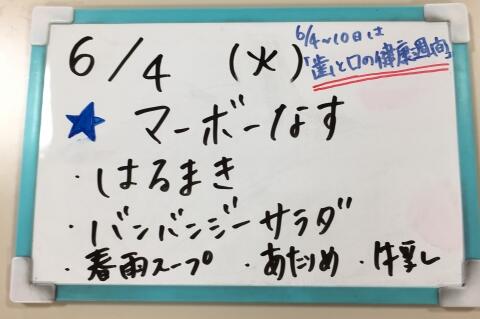 6/4 (火)
6/4~10日は
「歯と口の健康週間」
★ マーボーなす
・はるまき
・バンバンジーサラダ
・春雨スープ ・あたりめ ・牛乳